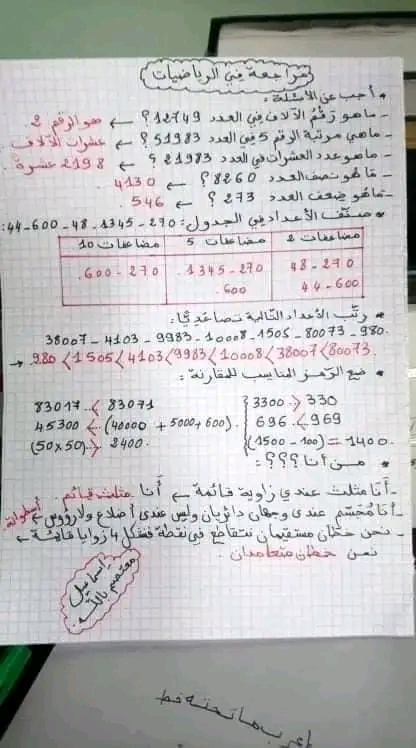 مراجعة في الرياضيات
* أجب عن الأسئلة:
- ما هو رقم الآلاف في العدد 12749؟ ← هو الرقم 2
- ما هي مرتبة الرقم 5 في العدد 51983؟ ← عشرات الآلاف.
- ما هو عدد العشرات في العدد 21983؟ ← 2198 عشرة.
- ما هو نصف العدد 8260؟ ← 4130
- ما هو ضعف العدد 273؟ ← 546.
* صنّف الأعداد في الجدول: 270-1345-48-600-44:
مضاعفات 2 | مضاعفات 5 | مضاعفات 10
48 - 270 | 1345 - 270. | 600 - 270.
44 - 600 | 600.
* رتّب الأعداد التالية تصاعديًّا:
38007 - 4103 - 9983 - 10008 - 1505 - 80073 - 980.
→ 980 < 1505 < 4103 < 9983 < 10008 < 38007 < 80073.
* ضع الرمز المناسب للمقارنة:
83017 < 83071
3300 > 330
45300 < (40000 + 5000 + 600).
696 < 969
(50×50) > 2400.
(1500 - 100) = 1400.
* من أنا؟؟؟:
- أنا مثلث عندي زاوية قائمة ← أنا مثلث قائم.
- أنا مجسّم عندي وجهان دائريان وليس عندي أضلاع ولا رؤوس ← أسطوانة.
- نحن خطان مستقيمان نتقاطع في نقطة فنشكل 4 زوايا قائمة ←
نحن خطان متعامدان.
إسماعيل
معتصم بالله.
أعرب ما تحته خط